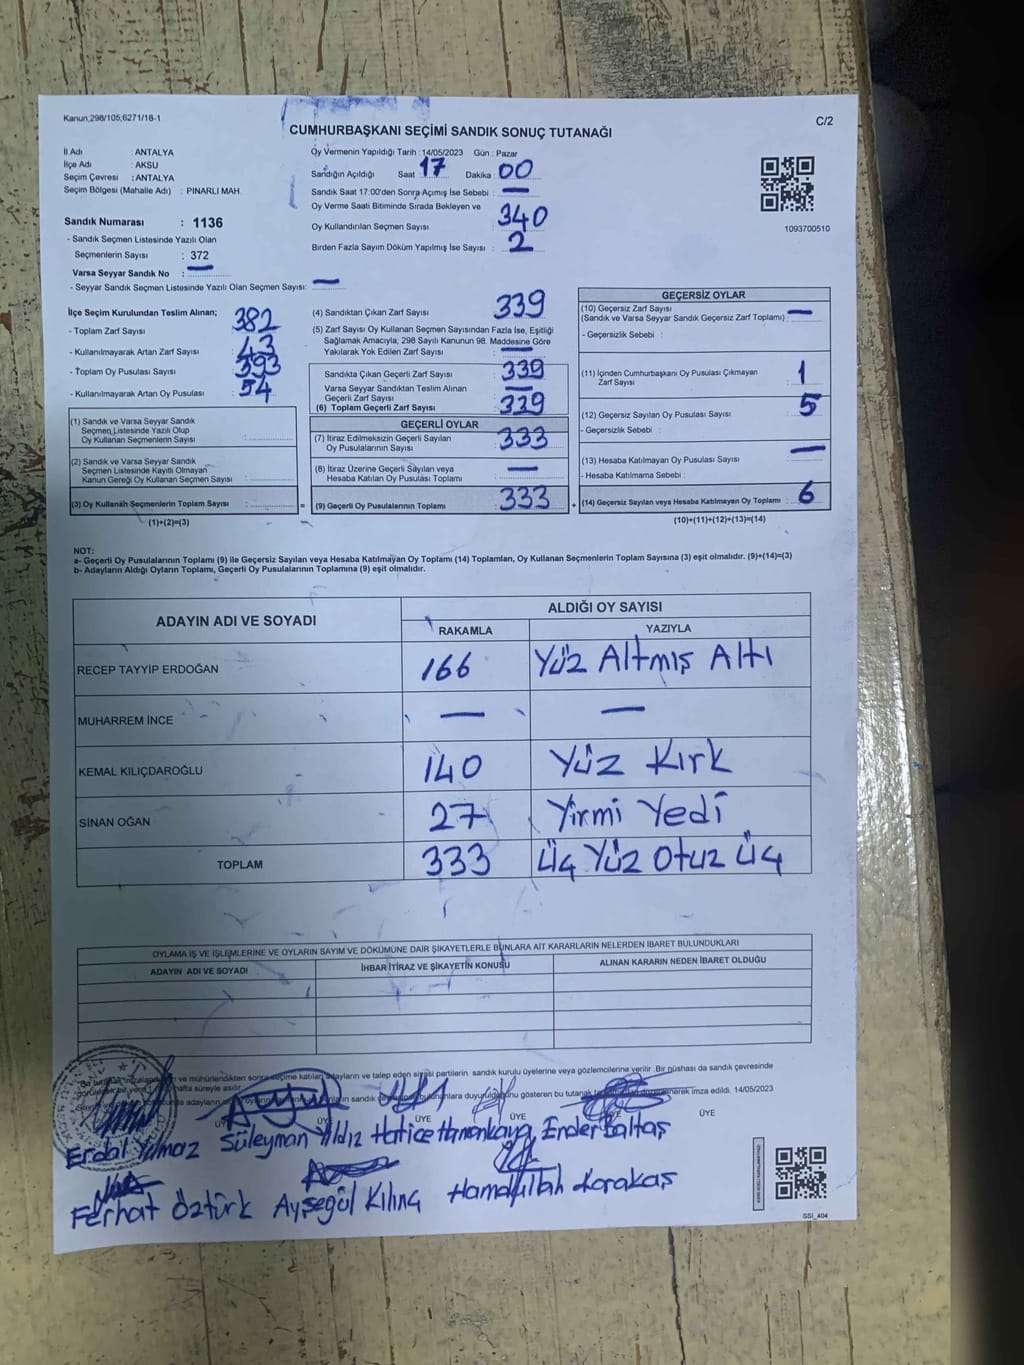 Kanun,298/105,6271/18-1
C/2
CUMHURBAŞKANI SEÇİMİ SANDIK SONUÇ TUTANAĞI
İl Adı : ANTALYA
İlçe Adı : AKSU
Seçim Çevresi : ANTALYA
Seçim Bölgesi (Mahalle Adı) : PINARLI MAH.
Oy Vermenin Yapıldığı Tarih : 14/05/2023 Gün : Pazar
Sandığın Açıldığı Saat 17 Dakika 00
Sandık Saat 17:00'den Sonra Açımış İse Sebebi : —
Oy Verme Saati Bitiminde Sırada Bekleyen ve
Oy Kullandırılan Seçmen Sayısı : 340
Birden Fazla Sayım Döküm Yapılmış İse Sayısı : 2
1093700510
Sandık Numarası : 1136
- Sandık Seçmen Listesinde Yazılı Olan
Seçmenlerin Sayısı : 372
Varsa Seyyar Sandık No : —
- Seyyar Sandık Seçmen Listesinde Yazılı Olan Seçmen Sayısı: —
İlçe Seçim Kurulundan Teslim Alınan;
- Toplam Zarf Sayısı : 382
- Kullanılmayarak Artan Zarf Sayısı : 43
- Toplam Oy Pusulası Sayısı : 393
- Kullanılmayarak Artan Oy Pusulası : 54
(1) Sandık ve Varsa Seyyar Sandık
Seçmen Listesinde Yazılı Olup
Oy Kullanan Seçmenlerin Sayısı :
(2) Sandık ve Varsa Seyyar Sandık
Seçmen Listesinde Kayıtlı Olmayan
Kanun Gereği Oy Kullanan Seçmen Sayısı :
(3) Oy Kullanan Seçmenlerin Toplam Sayısı :
(1)+(2)=(3)
(4) Sandıktan Çıkan Zarf Sayısı : 339
(5) Zarf Sayısı Oy Kullanan Seçmen Sayısından Fazla İse, Eşitliği
Sağlamak Amacıyla, 298 Sayılı Kanunun 98. Maddesine Göre
Yakılarak Yok Edilen Zarf Sayısı : —
Sandıkta Çıkan Geçerli Zarf Sayısı : 339
Varsa Seyyar Sandıktan Teslim Alınan
Geçerli Zarf Sayısı : —
(6) Toplam Geçerli Zarf Sayısı : 339
GEÇERLİ OYLAR
(7) İtiraz Edilmeksizin Geçerli Sayılan
Oy Pusulalarının Sayısı : 333
(8) İtiraz Üzerine Geçerli Sayılan veya
Hesaba Katılan Oy Pusulası Toplamı : —
= (9) Geçerli Oy Pusualarının Toplamı : 333
GEÇERSİZ OYLAR
(10) Geçersiz Zarf Sayısı
(Sandık ve Varsa Seyyar Sandık Geçersiz Zarf Toplamı) : —
- Geçersizlik Sebebi :
(11) İçinden Cumhurbaşkanı Oy Pusulası Çıkmayan
Zarf Sayısı : 1
(12) Geçersiz Sayılan Oy Pusulası Sayısı : 5
- Geçersizlik Sebebi :
(13) Hesaba Katılmayan Oy Pusulası Sayısı : —
- Hesaba Katılmama Sebebi :
+ (14) Geçersiz Sayılan veya Hesaba Katılmayan Oy Toplamı : 6
(10)+(11)+(12)+(13)=(14)
NOT:
a- Geçerli Oy Pusulalarının Toplamı (9) ile Geçersiz Sayılan veya Hesaba Katılmayan Oy Toplamı (14) Toplamları, Oy Kullanan Seçmenlerin Toplam Sayısına (3) eşit olmalıdır. (9)+(14)=(3)
b- Adayların Aldığı Oyların Toplamı, Geçerli Oy Pusulalarının Toplamına (9) eşit olmalıdır.
ADAYIN ADI VE SOYADI ALDIĞI OY SAYISI
RAKAMLA YAZIYLA
RECEP TAYYİP ERDOĞAN 166 Yüz Altmış Altı
MUHARREM İNCE — —
KEMAL KILIÇDAROĞLU 140 Yüz Kırk
SİNAN OĞAN 27 Yirmi Yedi
TOPLAM 333 Üç Yüz Otuz Üç
OYLAMA İŞ VE İŞLEMLERİNE VE OYLARIN SAYIM VE DÖKÜMÜNE DAİR ŞİKAYETLERLE BUNLARA AİT KARARLARIN NELERDEN İBARET BULUNDUKLARI
ADAYIN ADI VE SOYADI İHBAR İTİRAZ VE ŞİKAYETİN KONUSU ALINAN KARARIN NEDEN İBARET OLDUĞU
ve mühürlendikten sonra seçime katılan adayların ve talep eden siyasi partilerin sandık kurulu üyelerine veya gözlemcilerine verilir. Bir nüshası da sandık çevresinde
hafta süreyle asılır.
adayların sandık duyurulduğunu gösteren bu tutanak imza edildi. 14/05/2023
ÜYE ÜYE ÜYE ÜYE
Erdal Yılmaz Süleyman Yıldız Hatice Hamankaya Ender Baltaş
Ferhat Öztürk Ayşegül Kılınç Hamdullah Karakaş
SSI_404